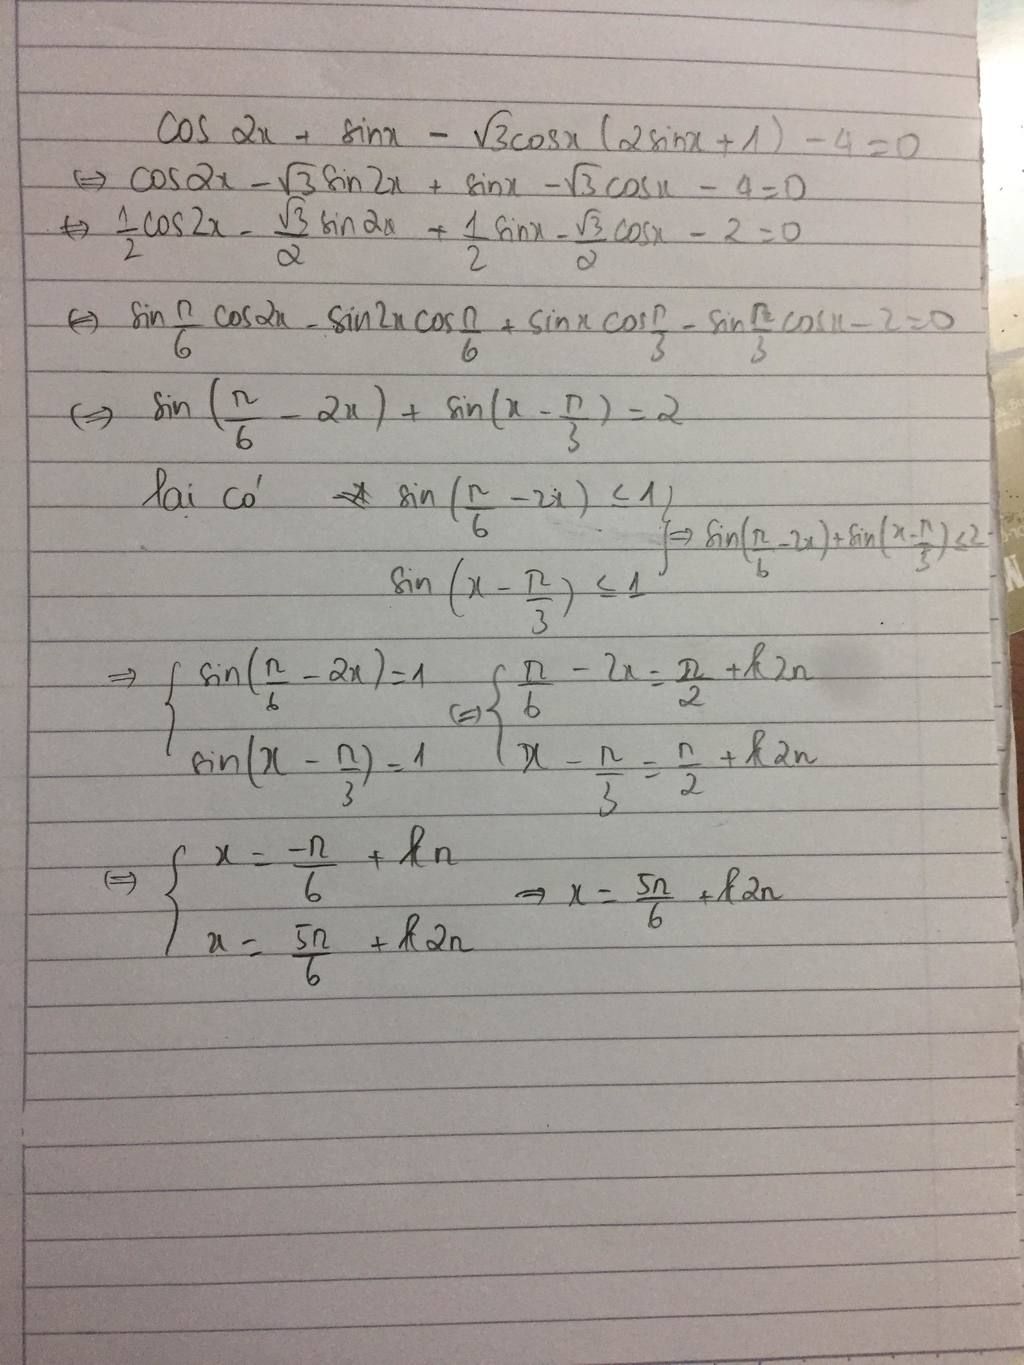 cos 2x + sinx - √3cosx (2sinx + 1) - 4 = 0
⇔ cos2x - √3 sin2x + sinx - √3 cosx - 4 = 0
⇔ 1/2 cos2x - √3/2 sin2x + 1/2 sinx - √3/2 cosx - 2 = 0
⇔ sin π/6 cos2x - sin2x cos π/6 + sinx cos π/3 - sin π/3 cosx - 2 = 0
⇔ sin (π/6 - 2x) + sin(x - π/3) = 2
lại có sin (π/6 - 2x) ≤ 1
⇒ sin(π/6 - 2x) + sin(x - π/3) ≤ 2
sin (x - π/3) ≤ 1
⇒ { sin(π/6 - 2x) = 1 ⇔ { π/6 - 2x = π/2 + k2π
sin(x - π/3) = 1 x - π/3 = π/2 + k2π
⇔ { x = -π/6 + kπ ⇒ x = 5π/6 + k2π
x = 5π/6 + k2π